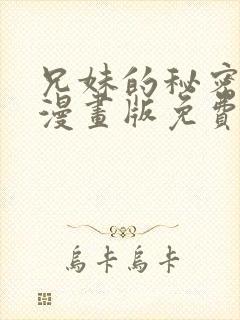 兄妹的秘密
漫畫版免費
烏卡烏卡